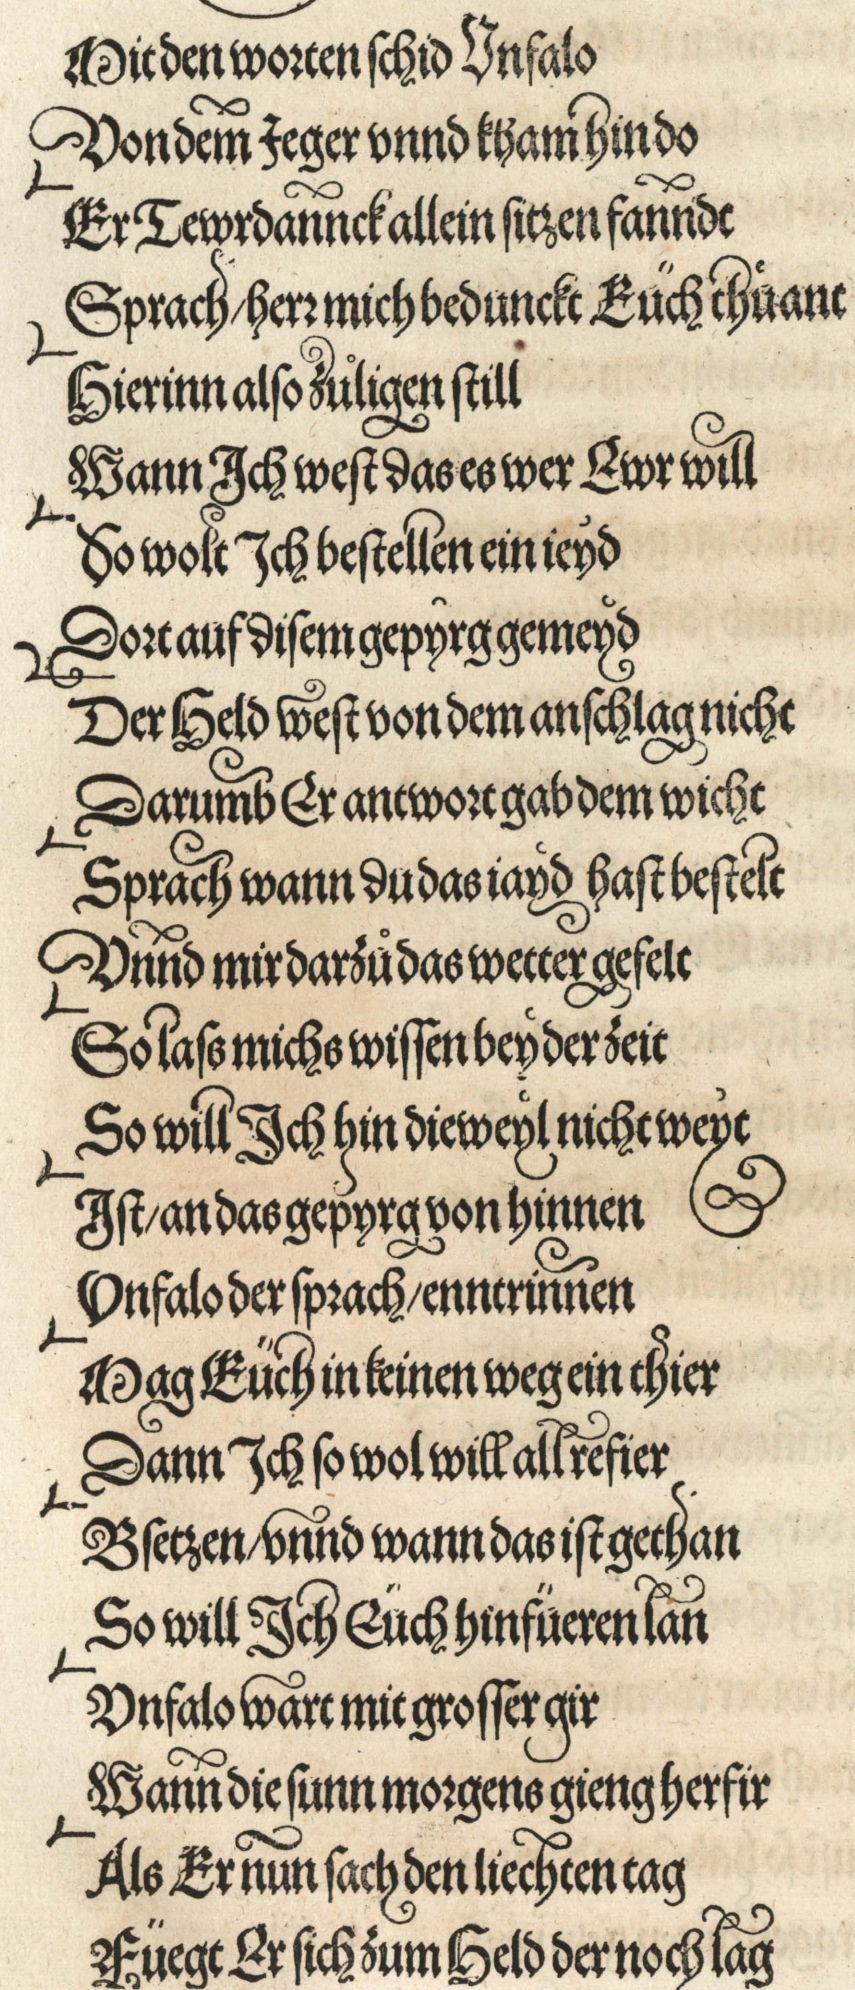 Mit den worten schid Vnfalo
Von dem Jeger vnnd kham hin do
Er Tewrdannck allein sitzen fanndt
Sprach/herr mich bedunckt Eüch thůant
Hierinn also zůligen still
Wann Ich west das es wer Ewr will
So wolt Ich bestellen ein ieyd
Dort auf disem gepyrg gemeyd
Der Held west von dem anschlag nicht
Darumb Er antwort gab dem wicht
Sprach wann du das iayd hast bestelt
Vnnd mir darzů das wetter gefelt
So lass michs wissen bey der zeit
So will Ich hin dieweyl nicht weyt
Ist/an das gepyrg von hinnen
Vnfalo der sprach/enntrinnen
Mag Eüch in keinen weg ein thier
Dann Ich so wol will all refier
Bsetzen/vnnd wann das ist gethan
So will Ich Eüch hinfüeren lan
Vnfalo wart mit grosser gir
Wann die sunn morgens gieng herfir
Als Er nun sach den liechten tag
Füegt Er sich zum Held der noch lag